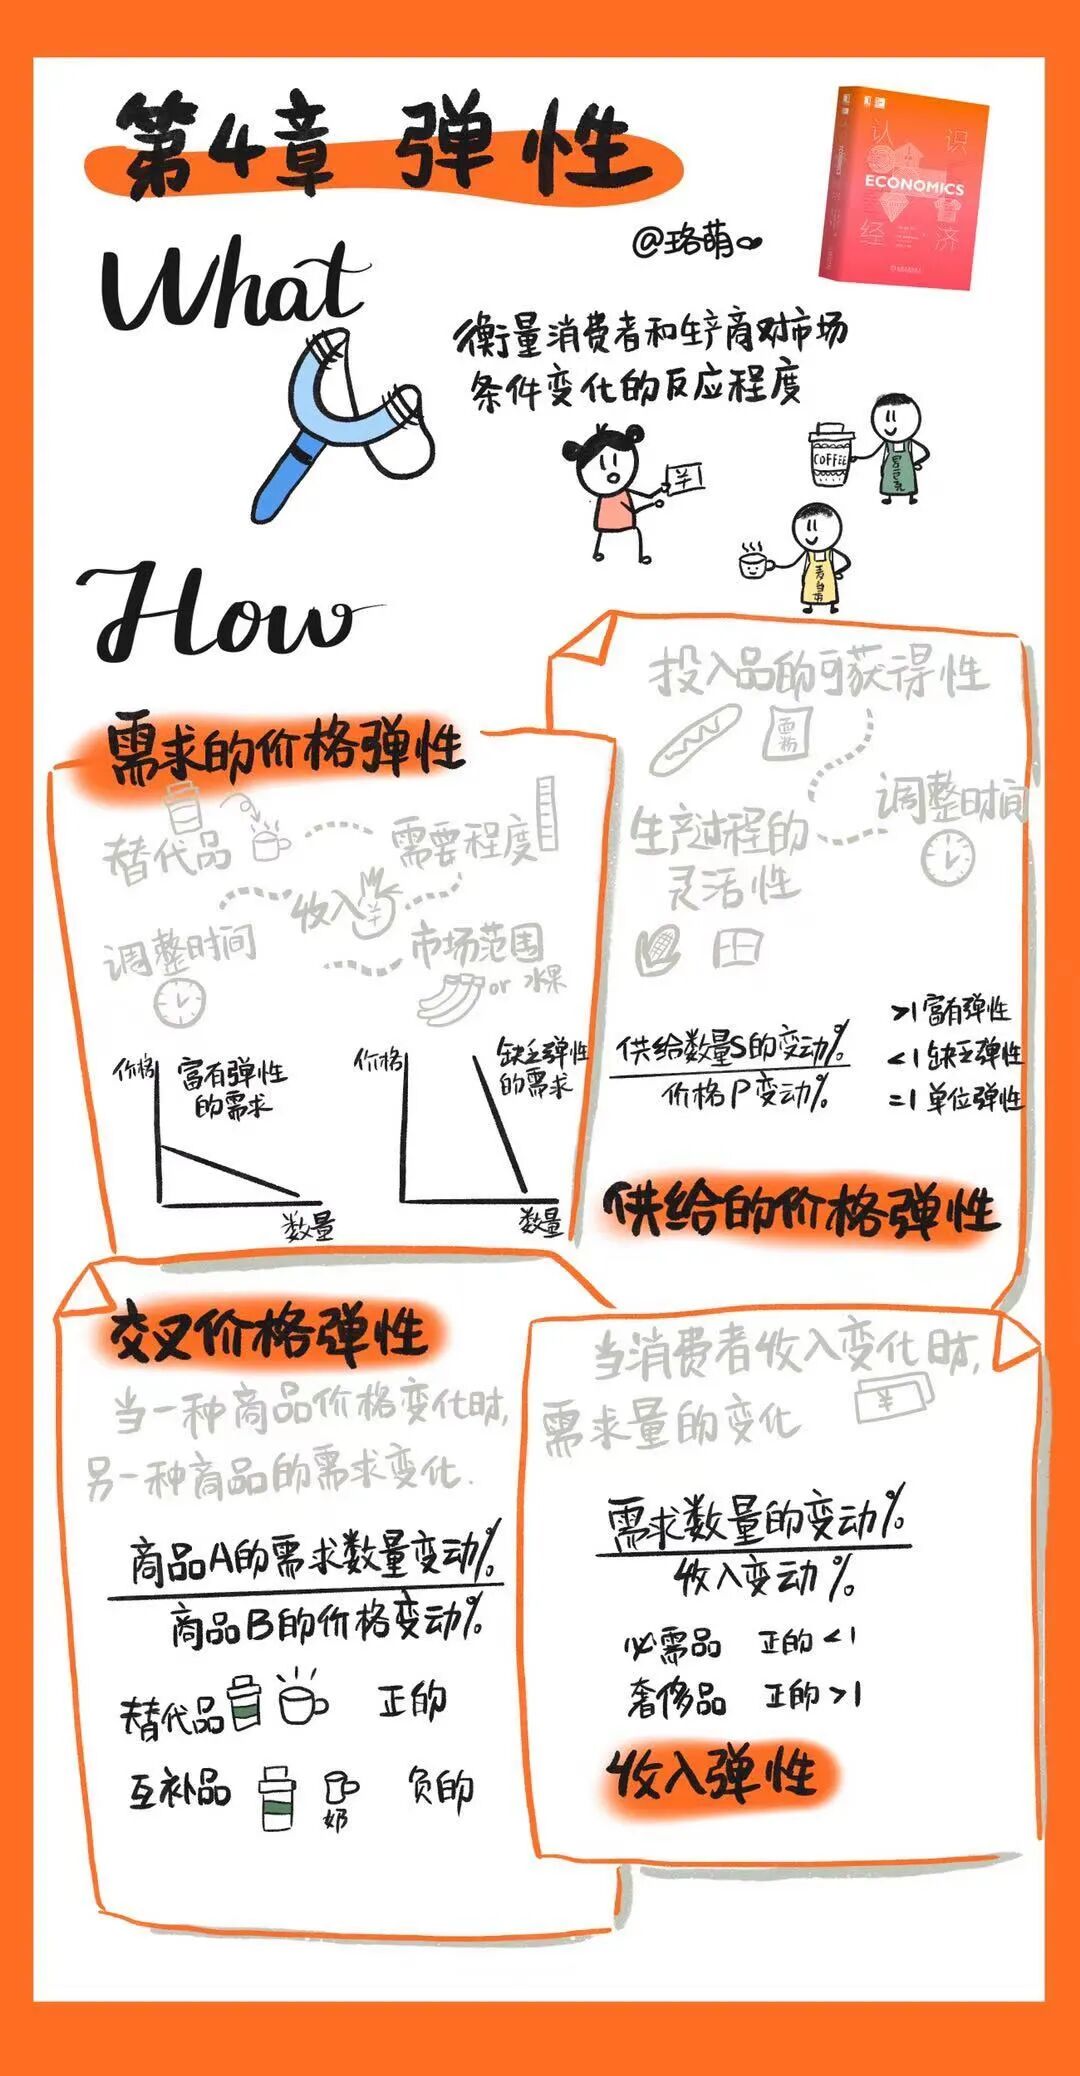 第4章 弹性
认识
ECONOMICS
经济
@珞萌
What
衡量消费者和生产商对市场
条件变化的反应程度
COFFEE
¥
How
需求的价格弹性
替代品
需要程度
收入
¥
调整时间
市场范围
or 水果
价格
富有弹性
的需求
数量
价格
缺乏弹性
的需求
数量
投入品的可获得性
面粉
调整时间
生产过程的
灵活性
供给数量S的变动%
价格P变动%
>1 富有弹性
<1 缺乏弹性
=1 单位弹性
供给的价格弹性
交叉价格弹性
当一种商品价格变化时,
另一种商品的需求变化.
商品A的需求数量变动%
商品B的价格变动%
替代品 正的
互补品 奶 负的
当消费者收入变化时,
需求量的变化
¥
需求数量的变动%
收入变动%
必需品 正的<1
奢侈品 正的>1
收入弹性